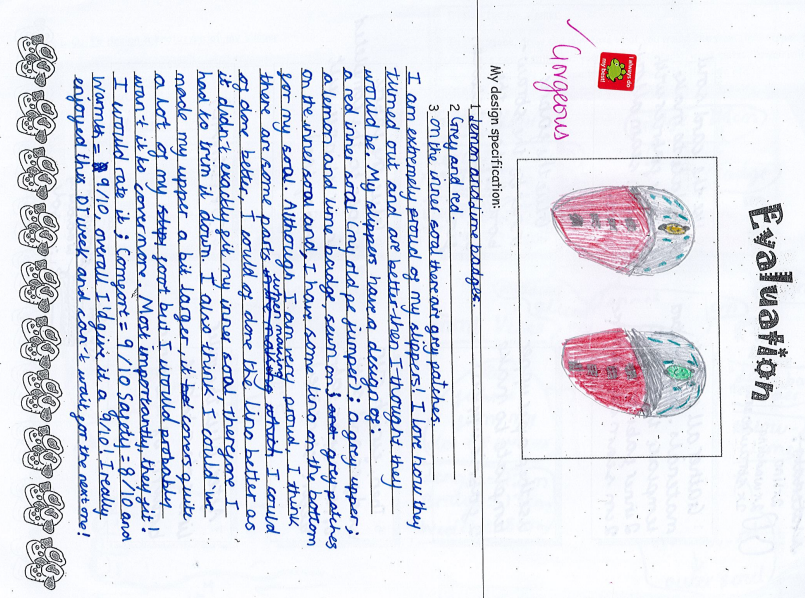 Evaluation
I always do
my best!
✓ Gorgeous
My design specification:
1 Lemon and lime badges.
2 Grey and red.
3 on the inner soral there air grey patches.
I am extremely proud of my slippers! I love how they
turned out and are better then I thought they
would be. My slippers have a design of:
a red inner soral (my old pe jumper; a grey upper;
a lemon and lime badge sewn on; grey patches
on the inner soral and, I have some lino on the bottom
for my soral. Although I am very proud, I think
there are some parts when making I could
of done better, I could of done the lino better as
it didn't exactly fit my inner soral, therefore I
had to trim it down. I also think I could've
made my upper a bit larger, it covers quite
a lot of my foot but I would probably
want it to cover more. Most importantly, they fit!
I would rate it; Comfort = 9/10 Safety = 8/10 and
Warmth = 9/10, overall I'd give it a 9/10! I really
enjoyed this DT week and can't wait for the next one!